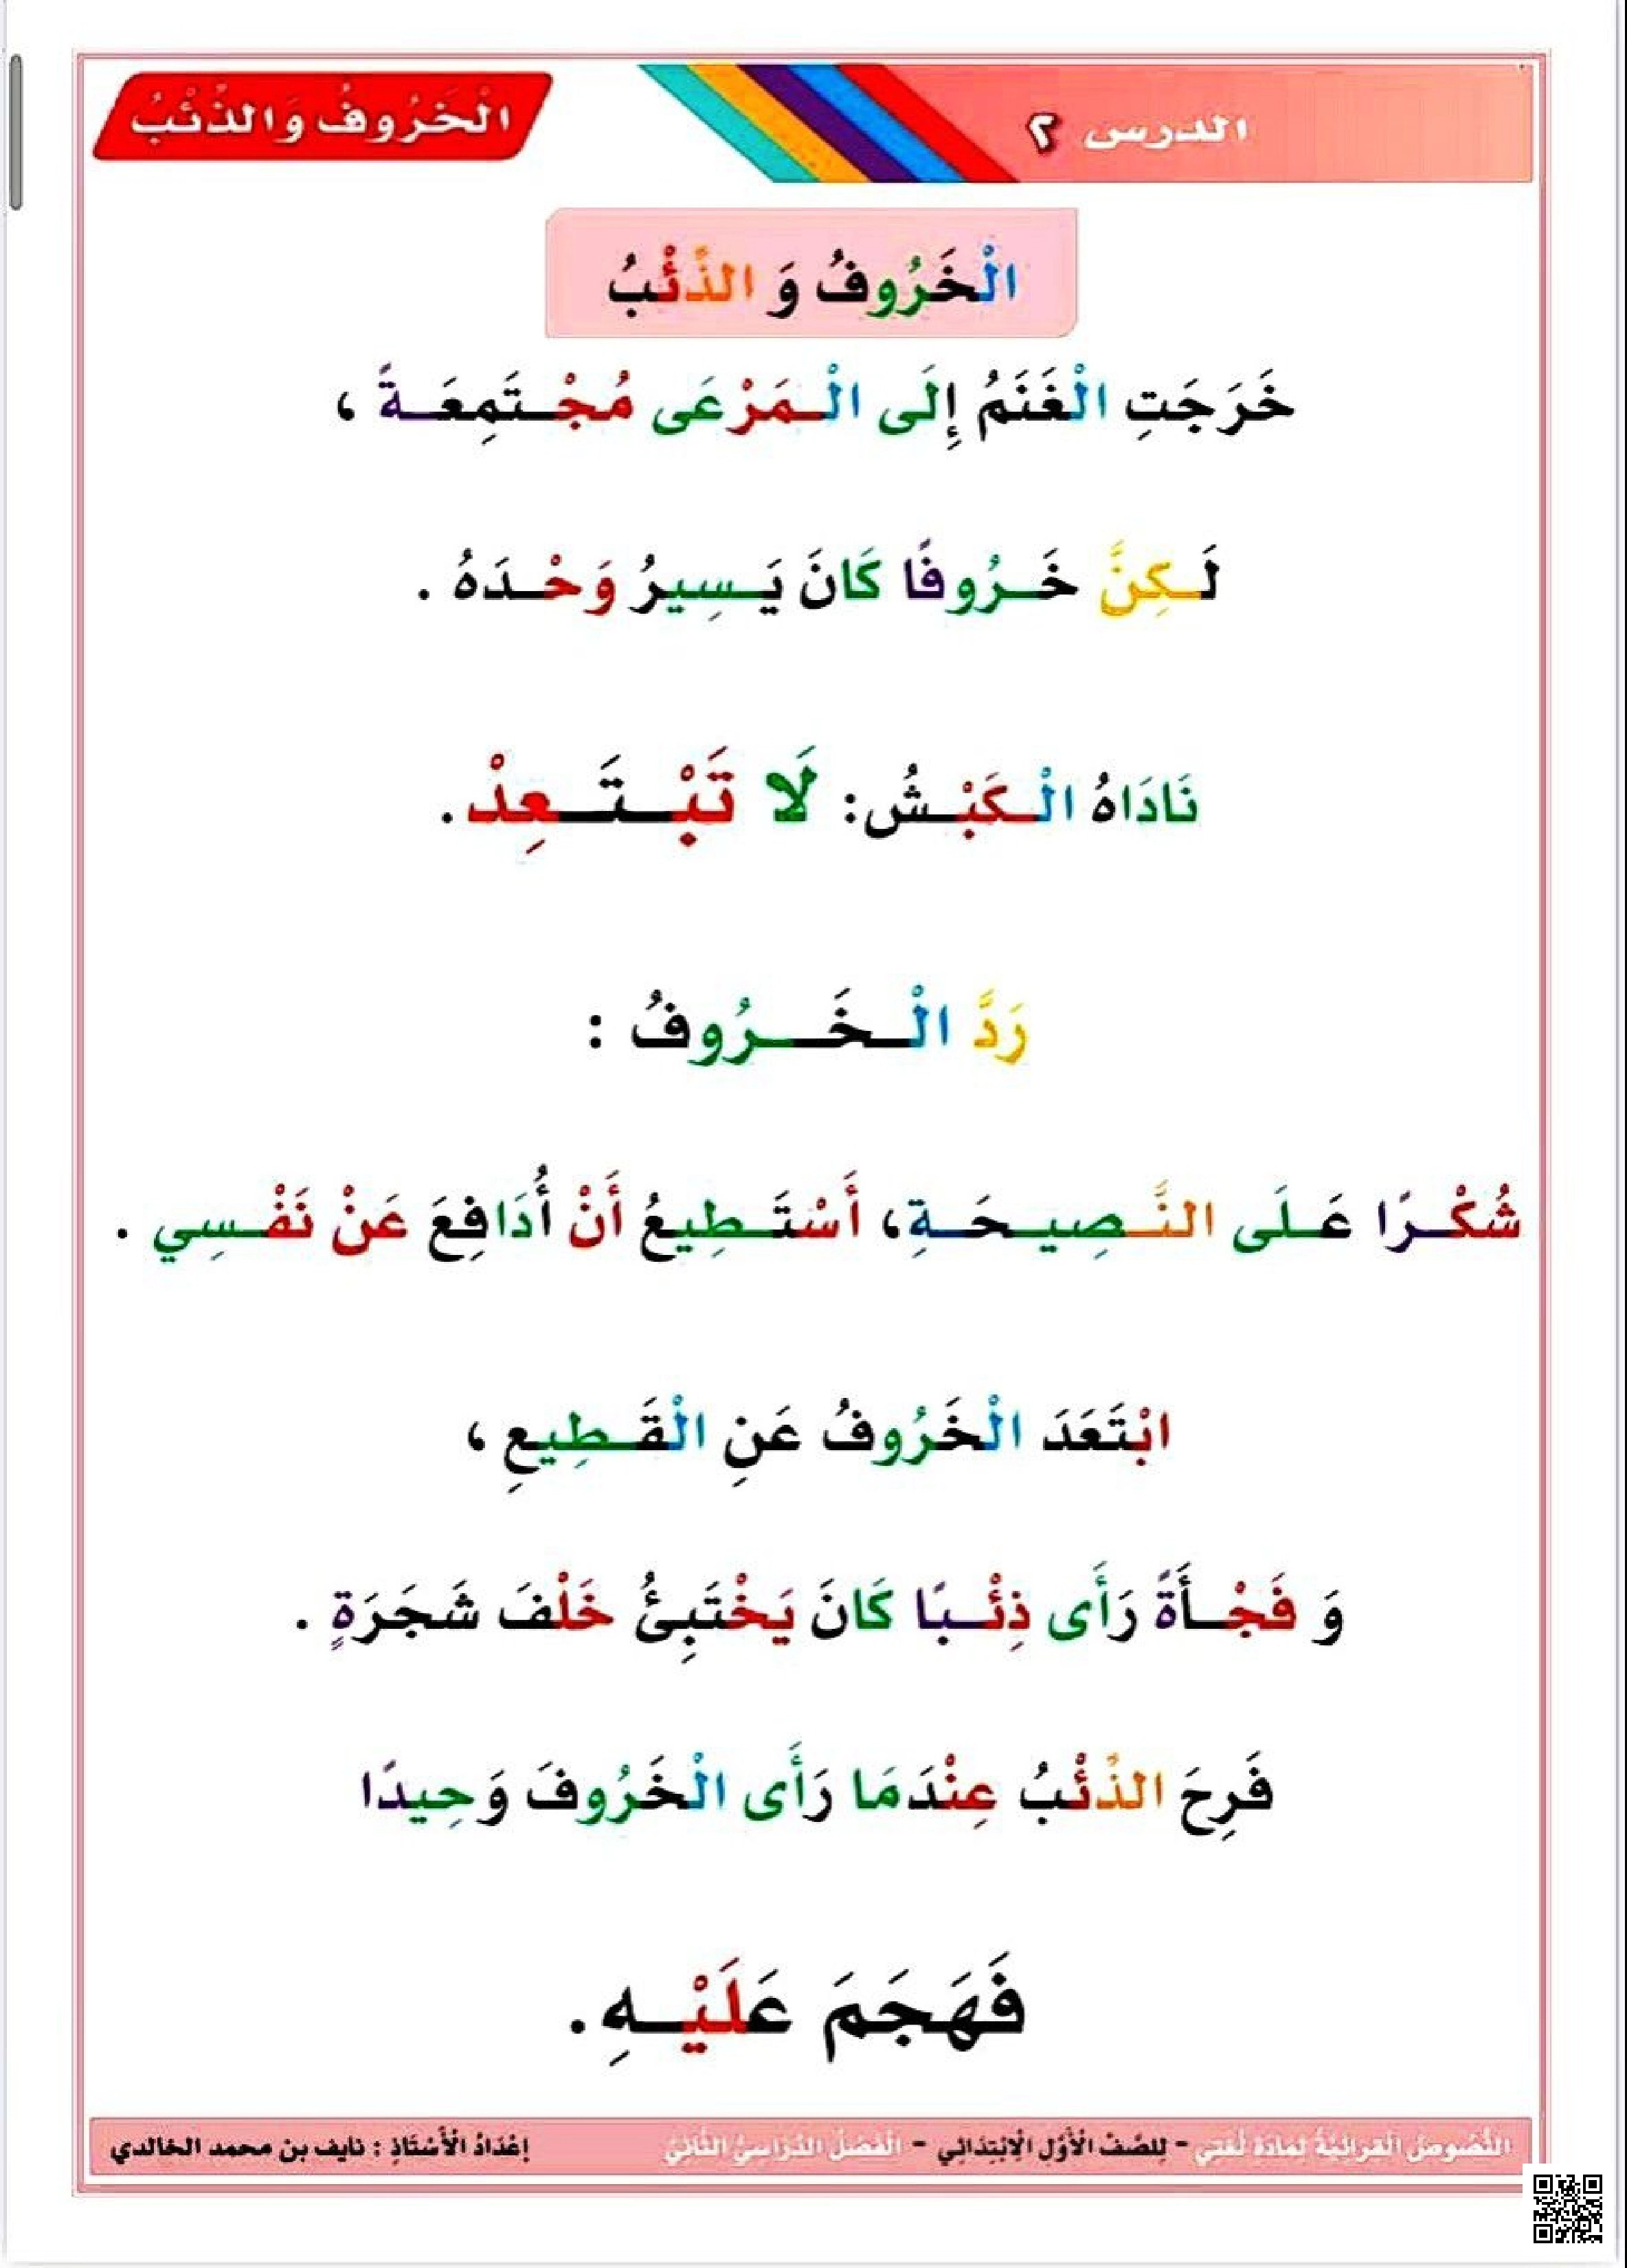 الدرس ٢
الْخَرُوفُ وَالذِّئْبُ
الْخَرُوفُ وَ الذِّئْبُ
خَرَجَتِ الْغَنَمُ إِلَى الْـمَرْعَى مُجْـتَمِعَـةً ،
لَـكِنَّ خَـرُوفًا كَانَ يَـسِيرُ وَحْـدَهُ .
نَادَاهُ الْـكَبْـشُ: لَا تَبْـتَـعِدْ.
رَدَّ الْـخَـرُوفُ :
شُكْـرًا عَـلَى النَّـصِيـحَـةِ، أَسْتَـطِيعُ أَنْ أُدَافِعَ عَنْ نَفْـسِي .
ابْتَعَدَ الْخَرُوفُ عَنِ الْقَـطِيعِ ،
وَ فَجْـأَةً رَأَى ذِئْـبًا كَانَ يَخْتَبِئُ خَلْفَ شَجَرَةٍ .
فَرِحَ الذِّئْبُ عِنْدَمَا رَأَى الْخَرُوفَ وَحِيدًا
فَهَجَمَ عَلَيْـهِ.
النُّصُوصُ الْقِرَائِيَّةُ لِمَادَةِ لُغَتِي - لِلصَّفِّ الْأَوَّلِ الْاِبْتِدَائِي - الْفَصْلُ الدِّرَاسِيُّ الثَّانِيُّ إِعْدَادُ الْأُسْتَاذِ : نايف بن محمد الخالدي